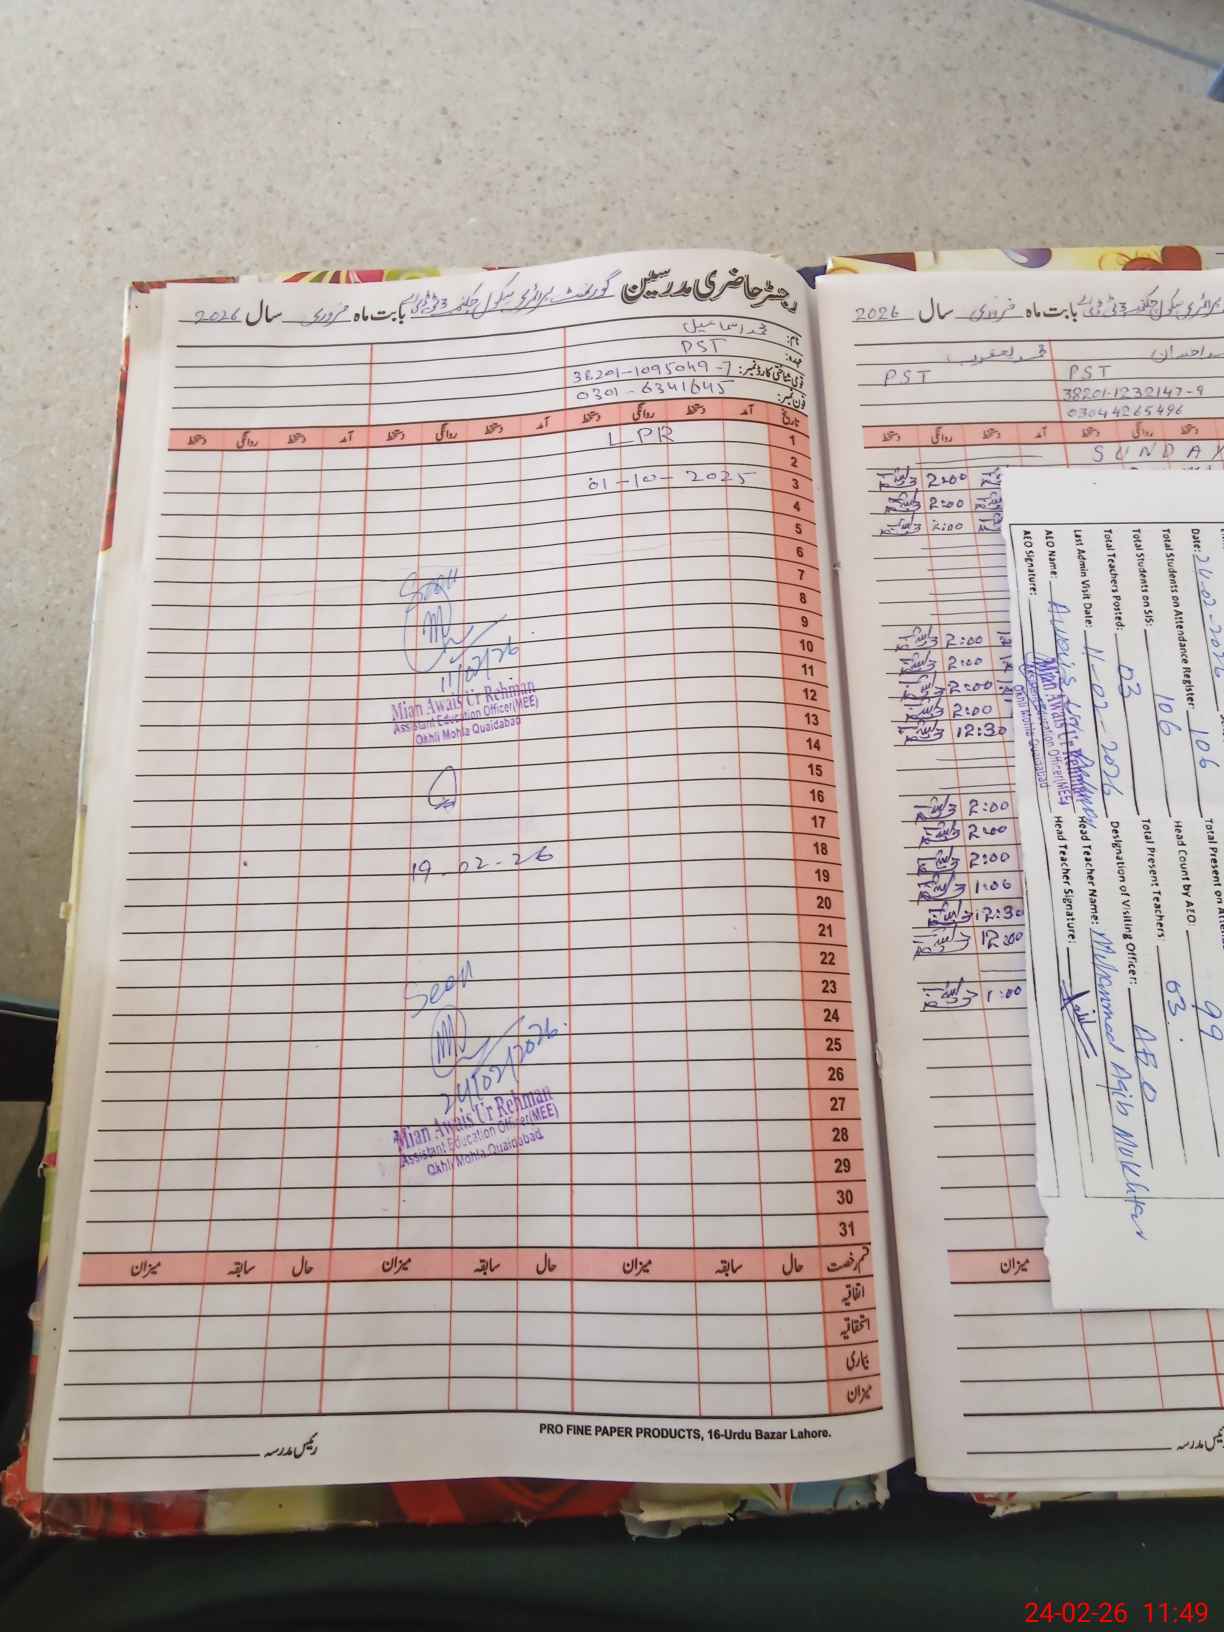 رجسٹر حاضری مدرسین گورنمنٹ پرائمری سکول چک نمبر 3 ٹی ڈی اے بابت ماہ فروری سال 2026
نام: محمد اسماعیل
عہدہ: PST
قومی شناختی کارڈ نمبر: 38201-1095049-7
فون نمبر: 0301-6341645
تاریخ آمد دستخط روانگی دستخط آمد دستخط روانگی دستخط آمد دستخط روانگی دستخط
1 LPR
2
3 01-10-2025
4
5
6
7
8
9
10
11
12
13
14
15
16
17
18
19
20
21
22
23
24
25
26
27
28
29
30
31
Seen
11/02/26
Mian Awais Ur Rehman
Assistant Education Officer(MEE)
Okhli Mohla Quaidabad
19-02-26
Seen
24/02/2026
Mian Awais Ur Rehman
Assistant Education Officer(MEE)
Okhli Mohla Quaidabad
قسم رخصت حال سابقہ میزان حال سابقہ میزان حال سابقہ میزان
اتفاقیہ
استحقاقیہ
بیماری
میزان
PRO FINE PAPER PRODUCTS, 16-Urdu Bazar Lahore.
رئیس مدرسہ
بابت ماہ فروری سال 2026
محمد یعقوب
PST PST
38201-1232147-9
03044265496
دستخط روانگی دستخط آمد دستخط روانگی دستخط
SUNDAY
2:00
2:00
2:00
2:00
2:00
2:00
2:00
12:30
2:00
2:00
2:00
1:06
12:30
12:00
1:00
میزان
رئیس مدرسہ
Date: 24-02-2026
Total Students on Attendance Register: 106
Total Students on SIS: 106 Head Count by AEO: 99
Total Teachers Posted: 03 Total Present Teachers: 03
Last Admin Visit Date: 11-02-2026 Designation of Visiting Officer: AEO
AEO Name: Awais Ur Rehman Head Teacher Name: Muhammad Aqib Mukhtar
AEO Signature: Head Teacher Signature:
Mian Awais Ur Rehman
Assistant Education Officer(MEE)
Okhli Mohla Quaidabad
24-02-26 11:49